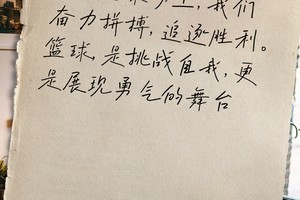 上，我们
奋力拼搏，追逐胜利。
篮球，是挑战自我，更
是展现勇气的舞台